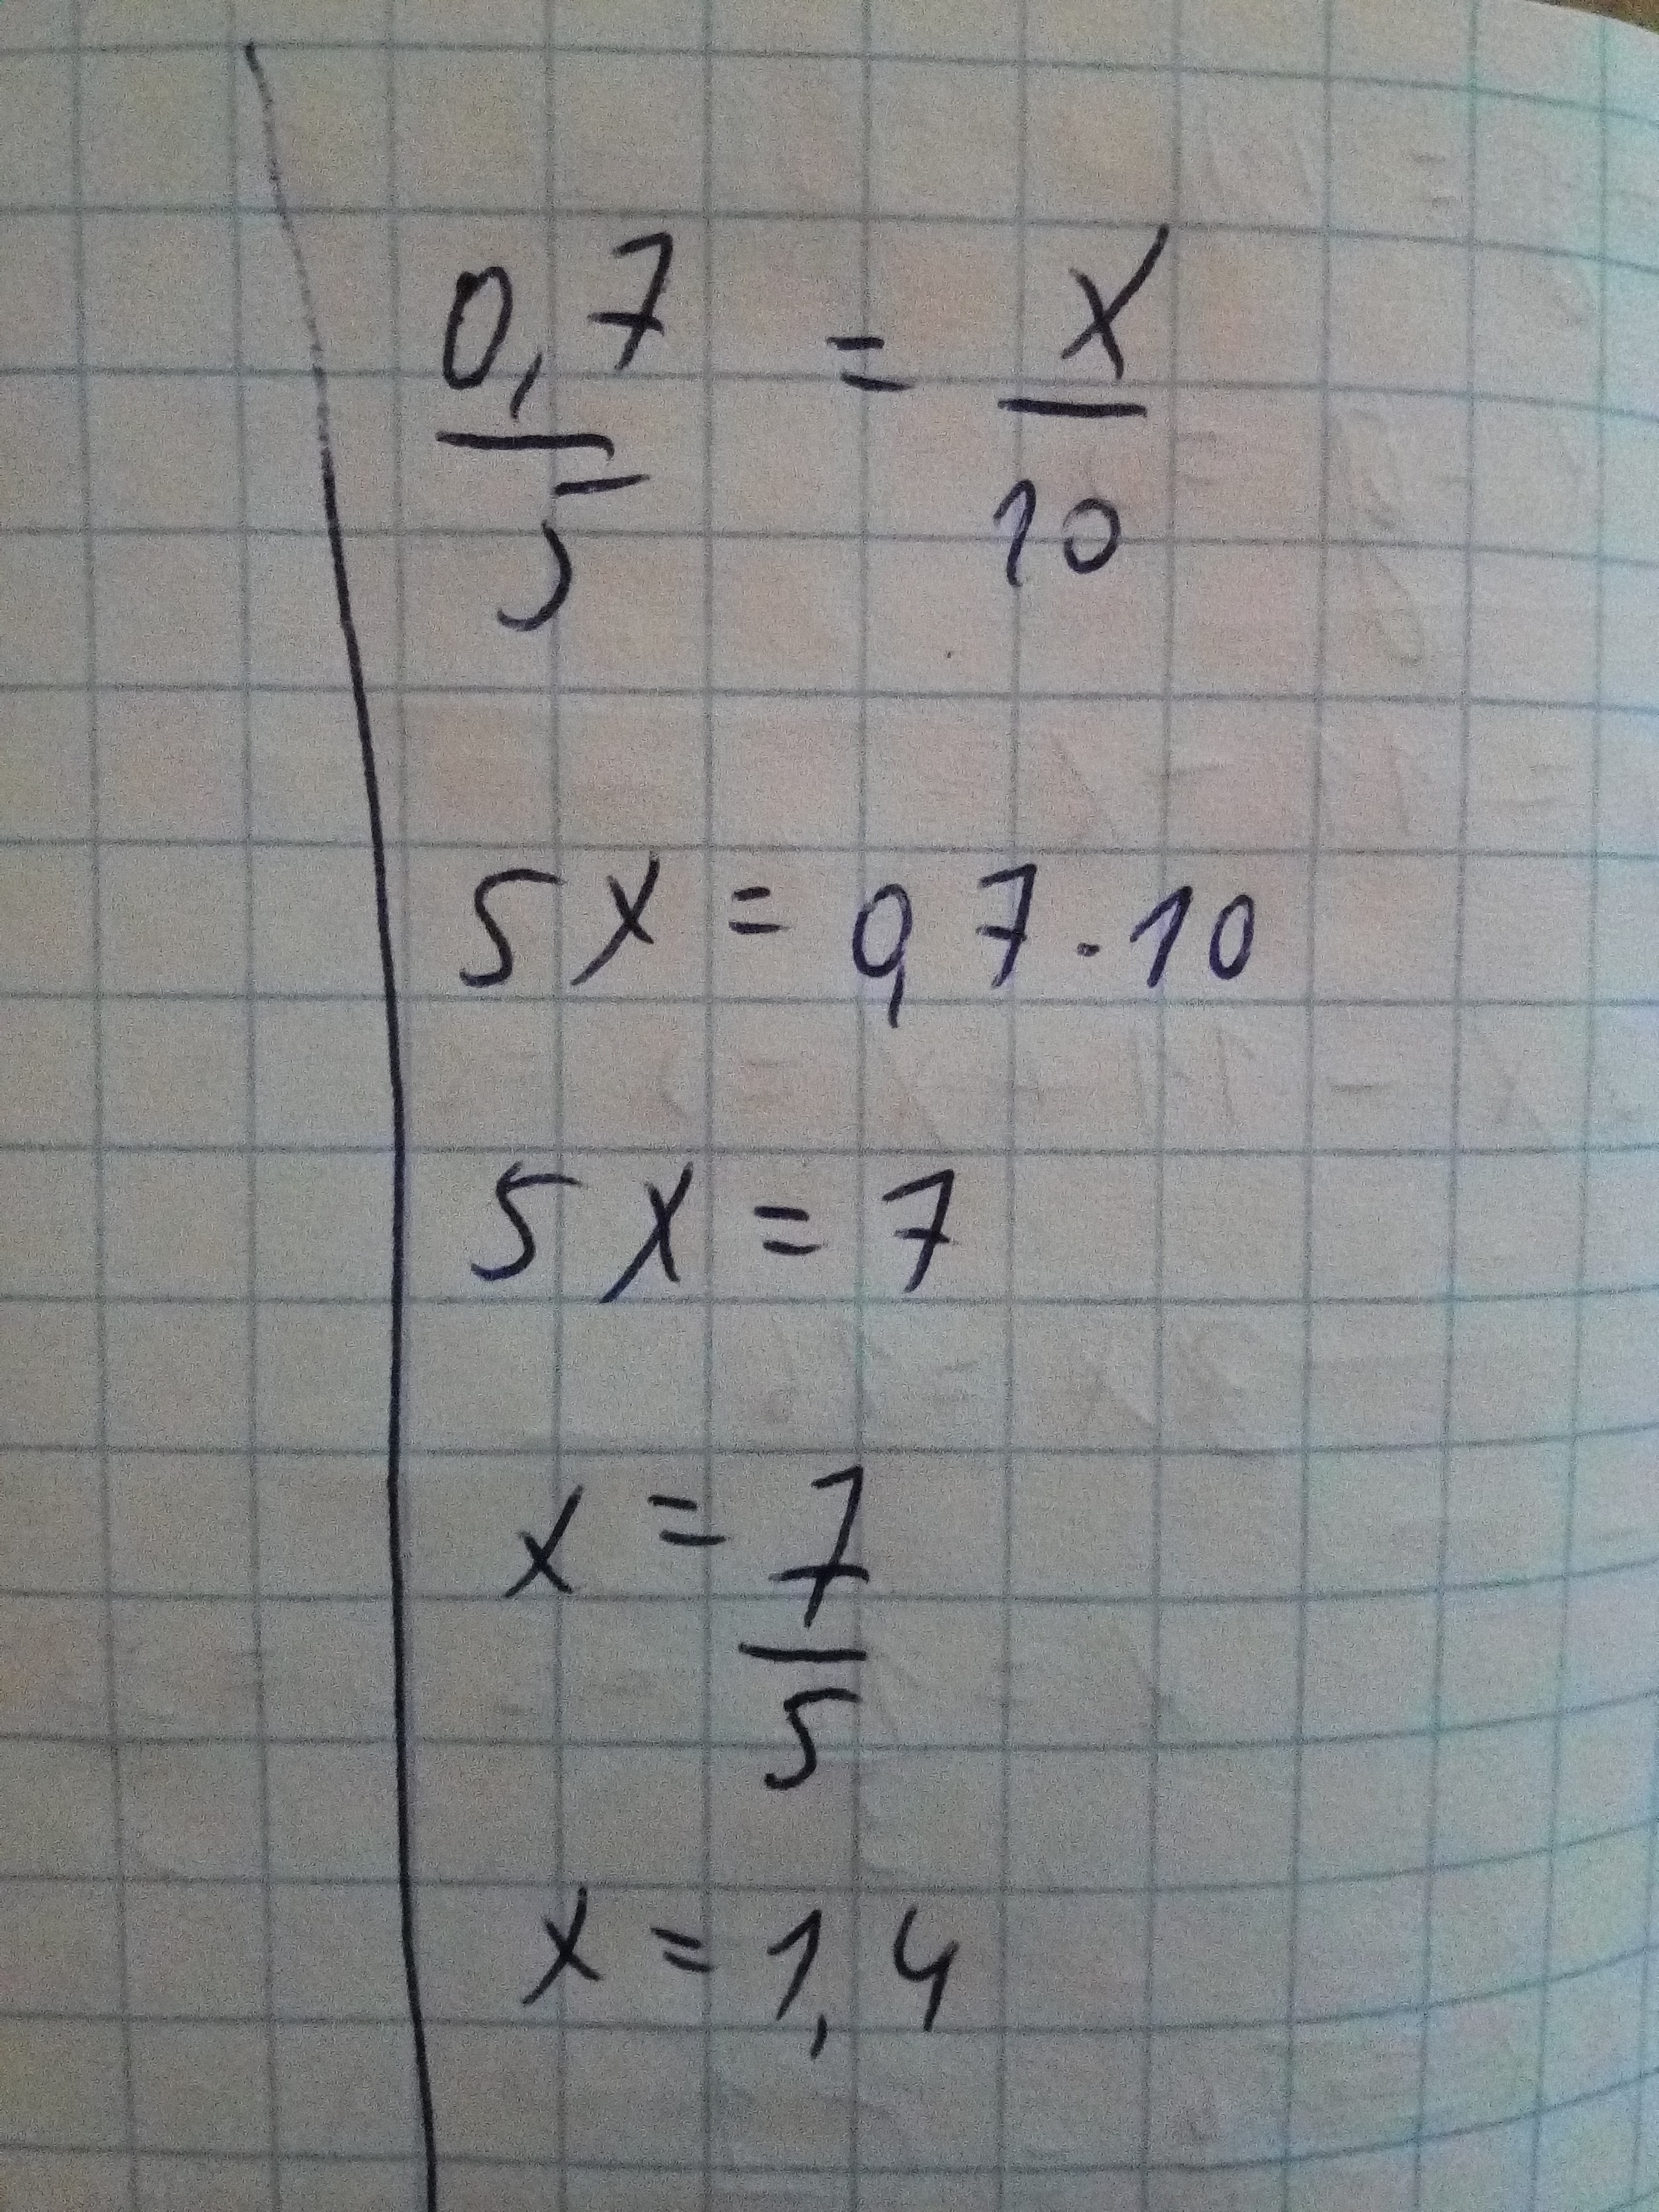 0,7/5 = x/10
5x = 0,7·10
5x = 7
x = 7/5
x = 1,4